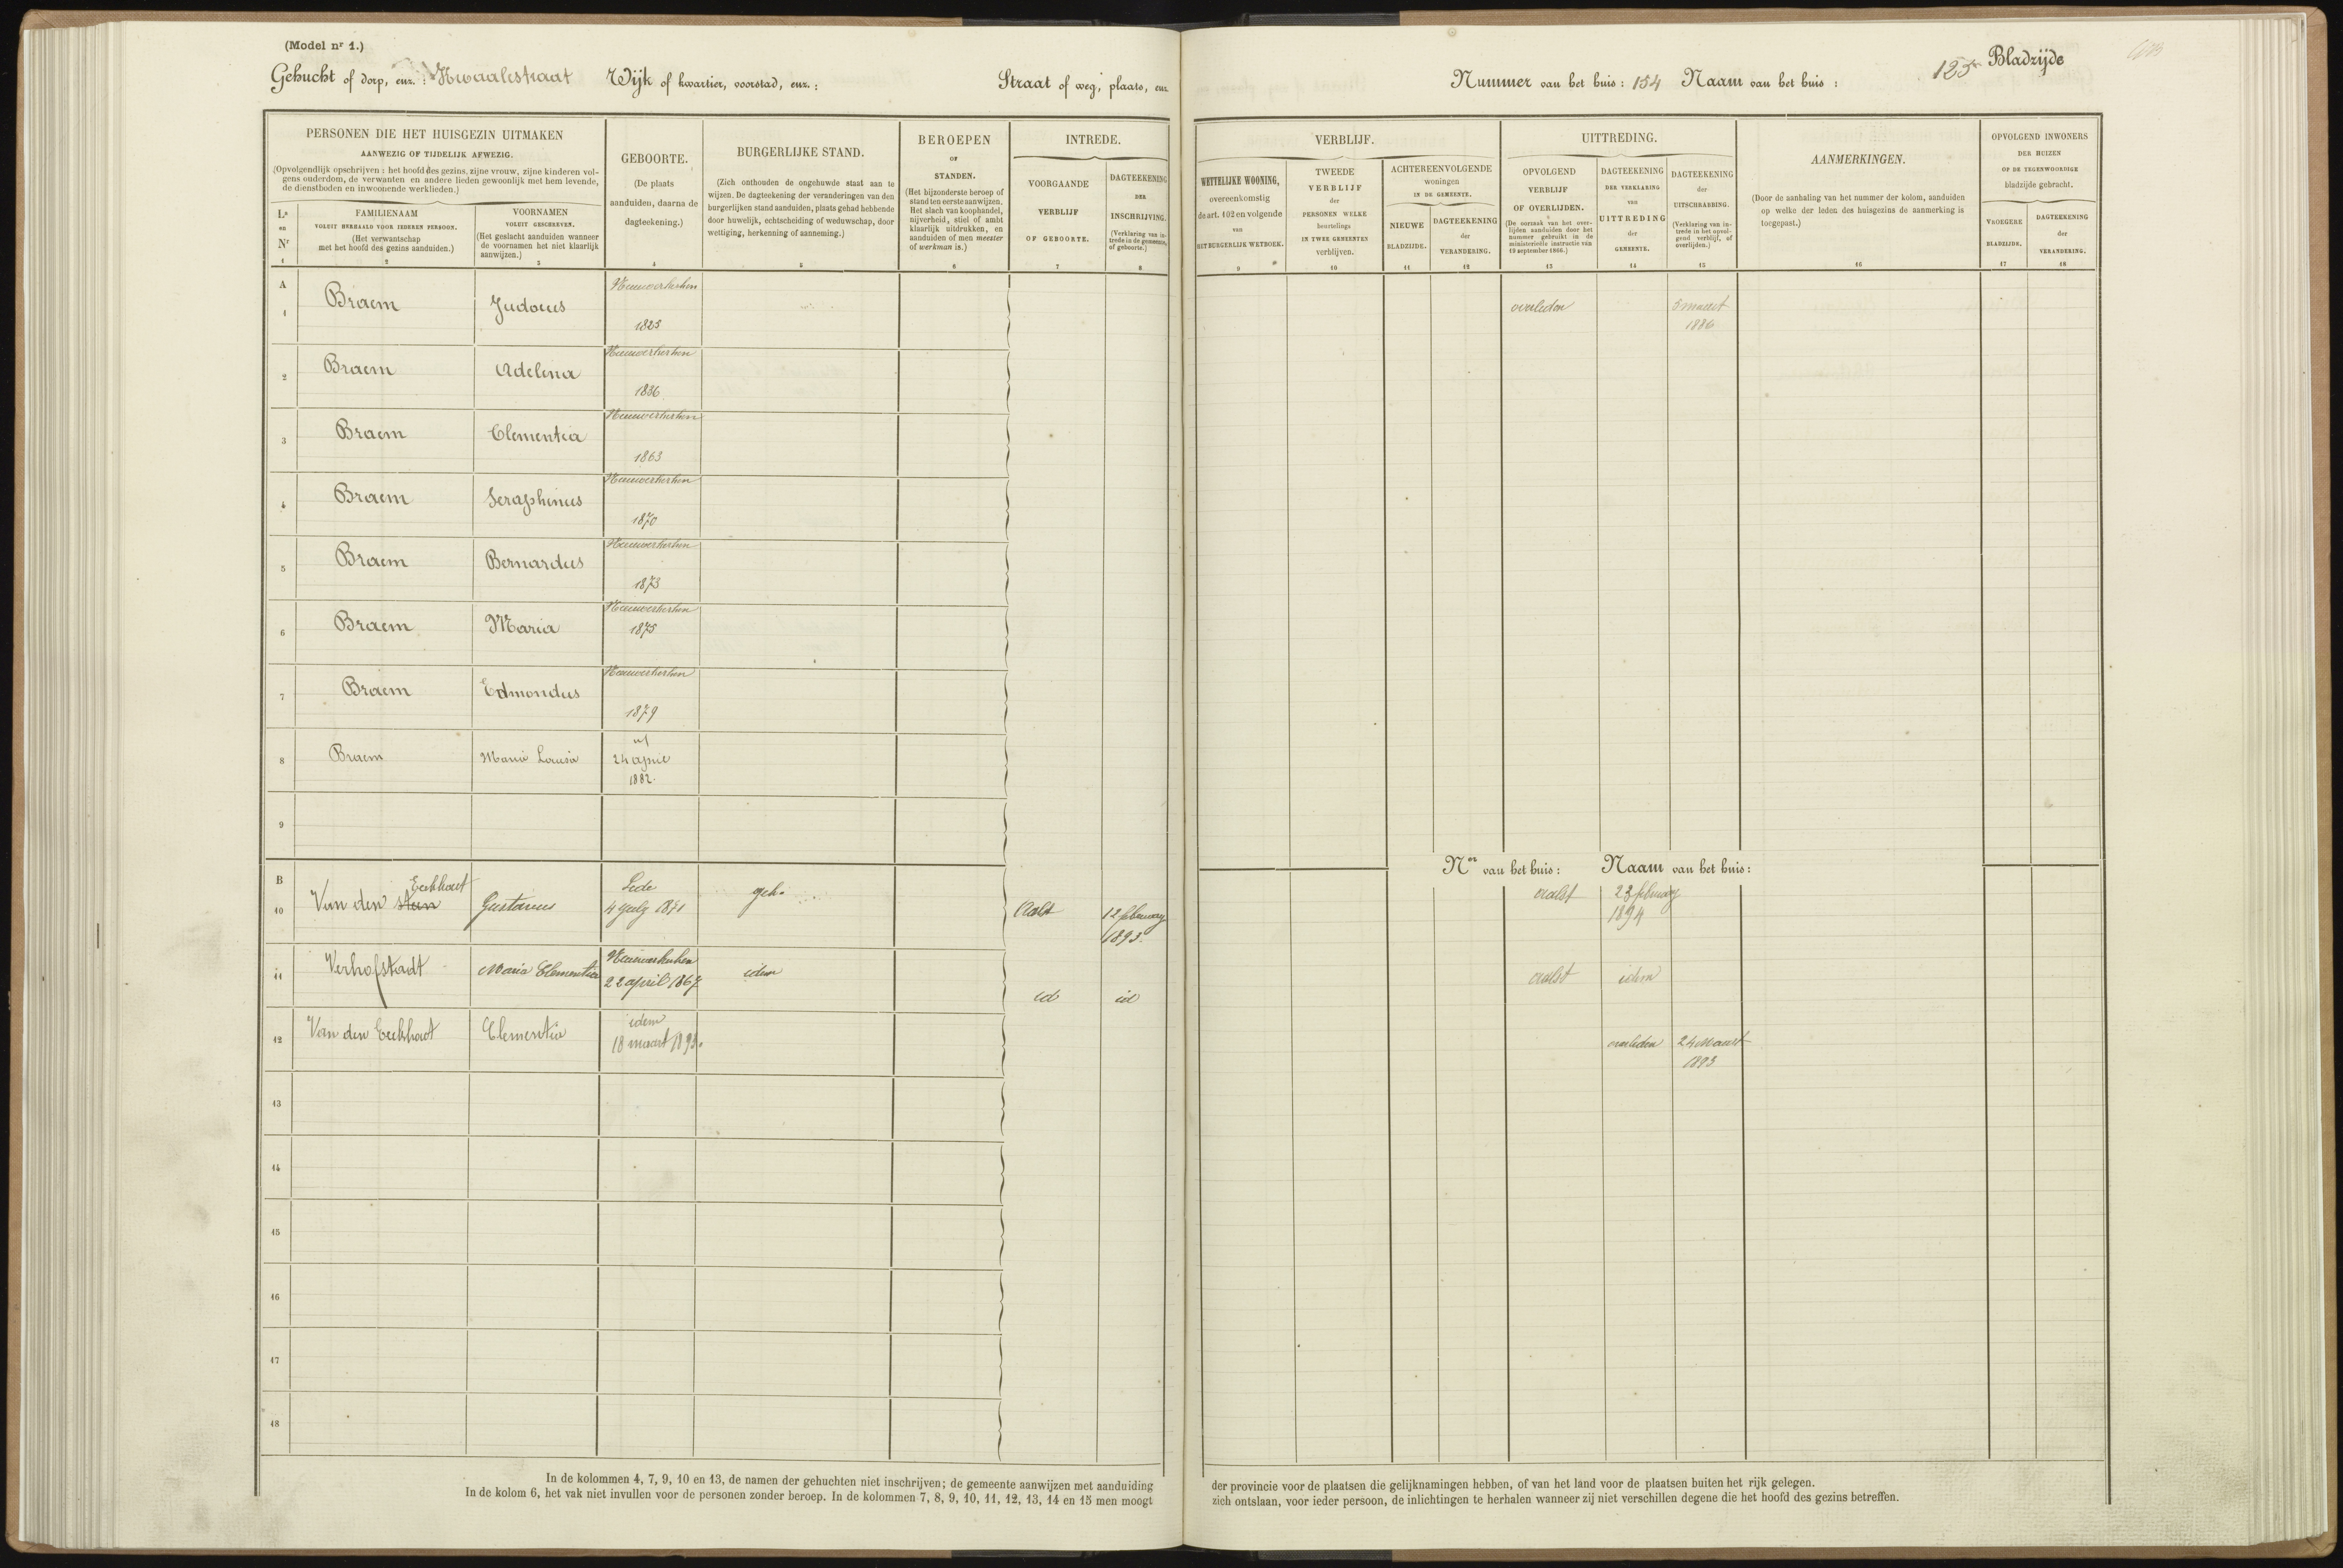 (Model nr 1.)
Gehucht of dorp, enz. : Kwaalestraat Wijk of kwartier, voorstad, enz. : Straat of weg, plaats, enz.
PERSONEN DIE HET HUISGEZIN UITMAKEN
AANWEZIG OF TIJDELIJK AFWEZIG.
(Opvolgendlijk opschrijven : het hoofd des gezins, zijne vrouw, zijne kinderen vol-
gens ouderdom, de verwanten en andere lieden gewoonlijk met hem levende,
de dienstboden en inwoonende werklieden.)
La
en
Nr
1
FAMILIENAAM
VOLUIT HERHAALD VOOR IEDEREN PERSOON.
(Het verwantschap
met het hoofd des gezins aanduiden.)
2
VOORNAMEN
VOLUIT GESCHREVEN.
(Het geslacht aanduiden wanneer
de voornamen het niet klaarlijk
aanwijzen.)
3
GEBOORTE.
(De plaats
aanduiden, daarna de
dagteekening.)
4
BURGERLIJKE STAND.
(Zich onthouden de ongehuwde staat aan te
wijzen. De dagteekening der veranderingen van den
burgerlijken stand aanduiden, plaats gehad hebbende
door huwelijk, echtscheiding of weduwschap, door
wettiging, herkenning of aanneming.)
5
BEROEPEN
OF
STANDEN.
(Het bijzonderste beroep of
stand ten eerste aanwijzen.
Het slach van koophandel,
nijverheid, stiel of ambt
klaarlijk uitdrukken, en
aanduiden of men meester
of werkman is.)
6
INTREDE.
VOORGAANDE
VERBLIJF
OF GEBOORTE.
7
DAGTEEKENING
DER
INSCHRIJVING.
(Verklaring van in-
trede in de gemeente,
of geboorte.)
8
A
1 Braem Judocus Nieuwerkerken
1823
2 Braem Adelina Nieuwerkerken
1836
3 Braem Clementia Nieuwerkerken
1863
4 Braem Seraphinus Nieuwerkerken
1870
5 Braem Bernardus Nieuwerkerken
1873
6 Braem Maria Nieuwerkerken
1875
7 Braem Edmondus Nieuwerkerken
1879
8 Braem Maria Louisa
24 april
1882.
9
B
10 Van den Eeckhaut Gustavus Lede
4 july 1871 geh. Aalst 12 february
1893.
11 Verhofstadt Maria Clementia Nieuwerkerken
22 april 1867 idem id id
12 Van den Eeckhaut Clementia idem
18 maart 1893.
13
14
15
16
17
18
In de kolommen 4, 7, 9, 10 en 13, de namen der gehuchten niet inschrijven; de gemeente aanwijzen met aanduiding
In de kolom 6, het vak niet invullen voor de personen zonder beroep. In de kolommen 7, 8, 9, 10, 11, 12, 13, 14 en 15 men moogt
Nummer van het huis : 154 Naam van het huis :
Bladzijde
VERBLIJF.
WETTELIJKE WOONING,
overeenkomstig
de art. 102 en volgende
van
HET BURGERLIJK WETBOEK.
9
TWEEDE
VERBLIJF
der
PERSONEN WELKE
beurtelings
IN TWEE GEMEENTEN
verblijven.
10
ACHTEREENVOLGENDE
woningen
IN DE GEMEENTE.
NIEUWE
BLADZIJDE.
11
DAGTEEKENING
der
VERANDERING.
12
UITTREDING.
OPVOLGEND
VERBLIJF
OF OVERLIJDEN.
(De oorzaak van het over-
lijden aanduiden door het
nummer gebruikt in de
ministeriëele instructie van
19 september 1866.)
13
DAGTEEKENING
DER VERKLARING
van
UITTREDING
der
GEMEENTE.
14
DAGTEEKENING
der
UITSCHRABBING.
(Verklaring van in-
trede in het opvol-
gend verblijf, of
overlijden.)
15
AANMERKINGEN.
(Door de aanhaling van het nummer der kolom, aanduiden
op welke der leden des huisgezins de aanmerking is
toegepast.)
16
OPVOLGEND INWONERS
DER HUIZEN
OP DE TEGENWOORDIGE
bladzijde gebracht.
VROEGERE
BLADZIJDE.
17
DAGTEEKENING
der
VERANDERING.
18
overleden 3 maart
1886
Ner van het huis : Naam van het huis :
aalst 23 february
1894
aalst idem
overleden 24 Maart
1893
der provincie voor de plaatsen die gelijknamingen hebben, of van het land voor de plaatsen buiten het rijk gelegen.
zich ontslaan, voor ieder persoon, de inlichtingen te herhalen wanneer zij niet verschillen degene die het hoofd des gezins betreffen.